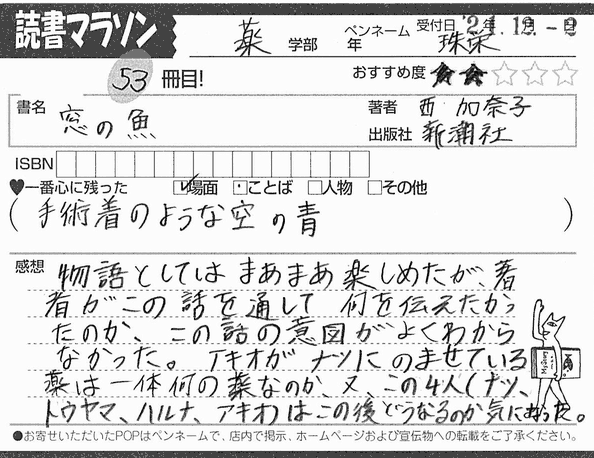 読書マラソン
薬 学部 年 ペンネーム 珠栄 受付日 '21年12月-2日
53 冊目! おすすめ度 ★★☆☆☆
書名 窓の魚
著者 西 加奈子
出版社 新潮社
ISBN
♥一番心に残った ☑場面 □ことば □人物 □その他
(手術着のような空の青)
感想 物語としてはまあまあ楽しめたが、著
者がこの話を通して何を伝えたかっ
たのか、この話の意図がよくわから
なかった。アキオがナツにのませている
薬は一体何の薬なのか、又、この4人(ナツ、
トウヤマ、ハルナ、アキオ)はこの後どうなるのか気になった。
●お寄せいただいたPOPはペンネームで、店内で掲示、ホームページおよび宣伝物への転載をご了承ください。